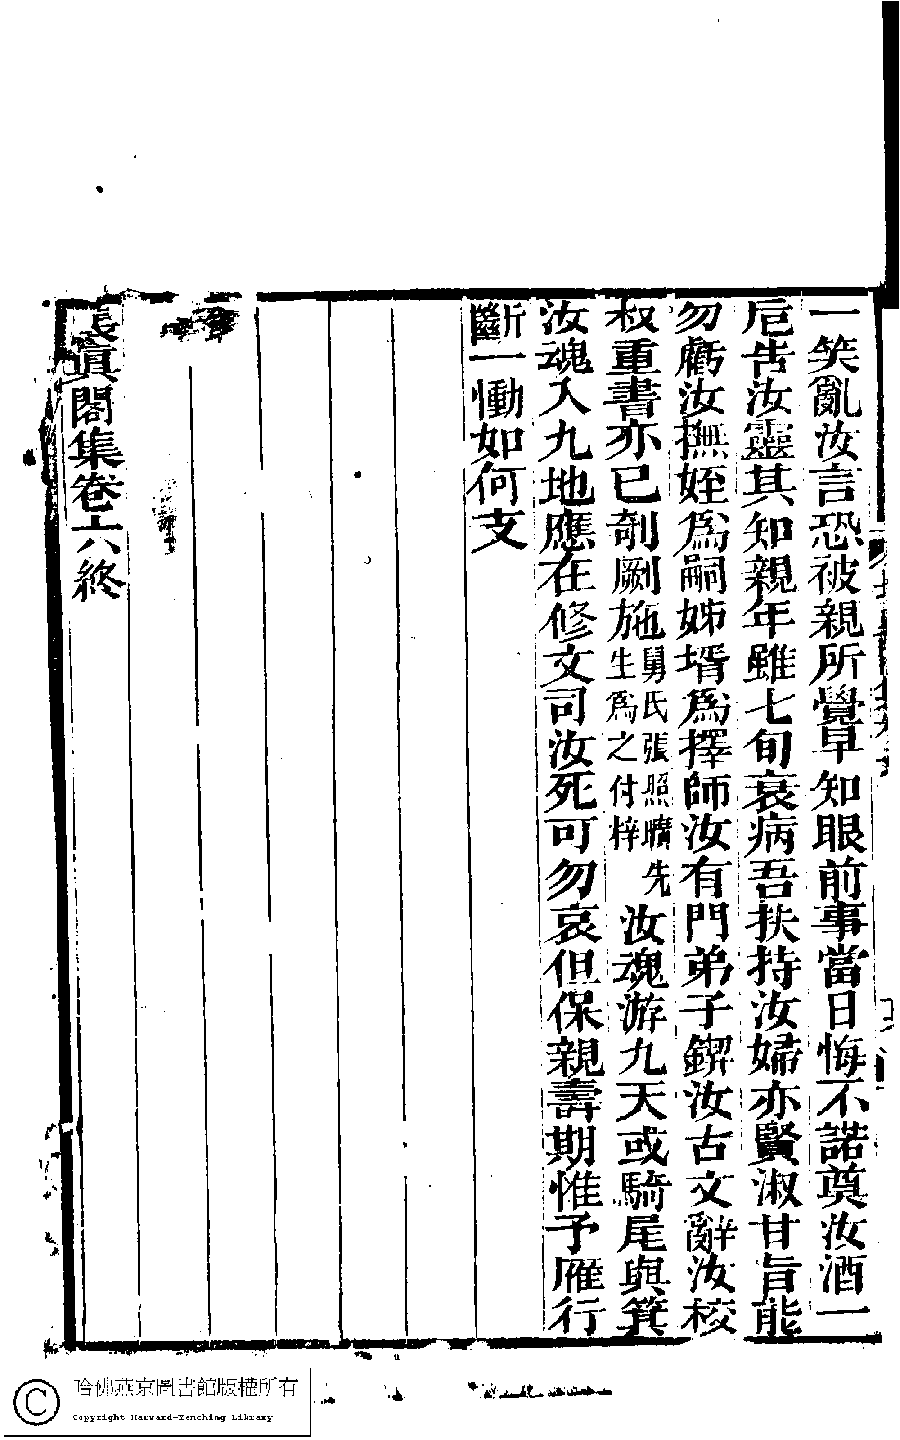 一笑亂汝言恐被親所覺早知眼前事當日悔不諾奠汝酒一
卮告汝靈其知親年雖七旬衰病吾扶持汝婦亦賢淑甘旨能
勿虧汝撫姪爲嗣姊壻爲擇師汝有門弟子鍥汝古文辭汝校
叔重書亦已剞劂施舅氏張照牘先
生爲之付梓汝魂游九天或騎尾與箕
汝魂入九地應在修文司汝死可勿哀但保親壽期惟予雁行
斷一慟如何支
長眞閣集卷六終
哈佛燕京圖書館版權所有
Copyright Harvard-Yenching Library